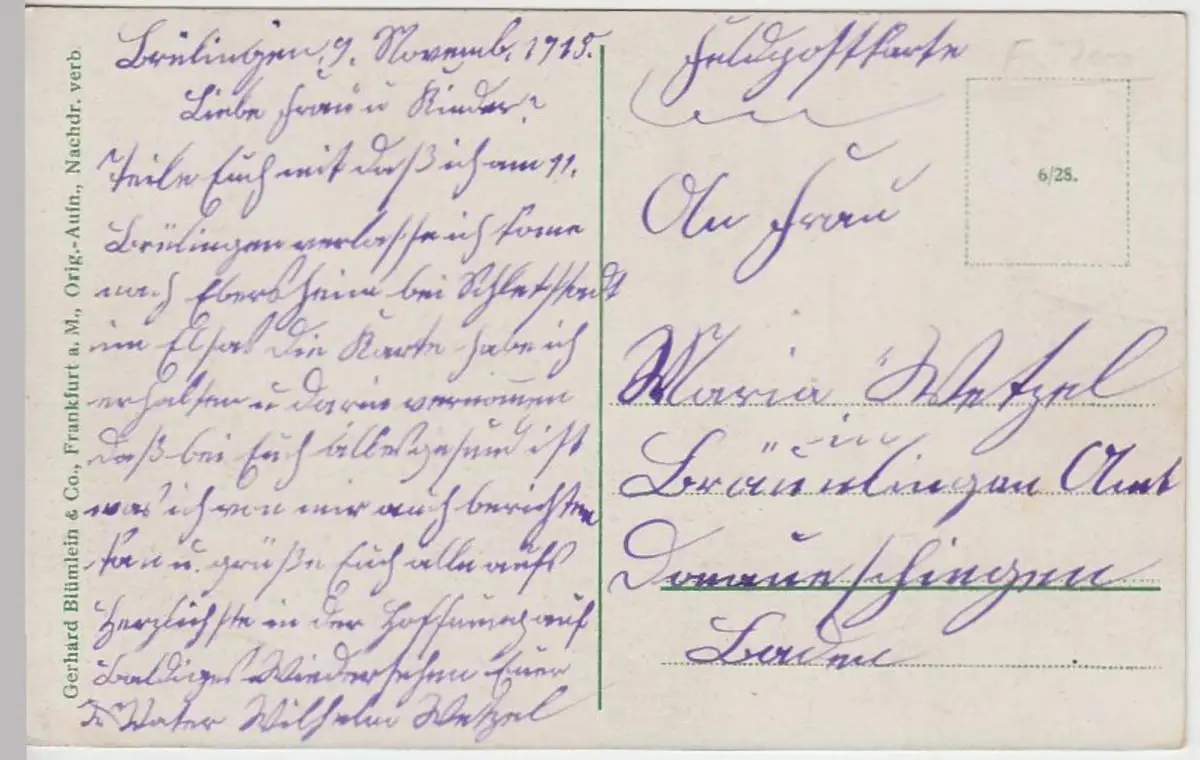 Gerhard Blümlein & Co., Frankfurt a. M., Orig.-Aufn., Nachdr. verb.
Brülingen, 9. Novemb. 1915.
Liebe Frau u Kinder?
Teile Euch mit daß ich am 11.
Brülingen verlasse ich kome
nach Ebersheim bei Schletstadt
im Elsas die Karte habe ich
erhalten u darin vernomen
daß bei Euch alles gesund ist
was ich von mir auch berichten
kan u. grüße Euch alle aufs
Herzlichste in der Hoffnung auf
baldiges Wiedersehen Euer
Vater Wilhelm Wetzel
Feldpostkarte
6/28.
An Frau
Maria Wetzel
in
Bräunlingen Amt
Donaueschingen
Baden